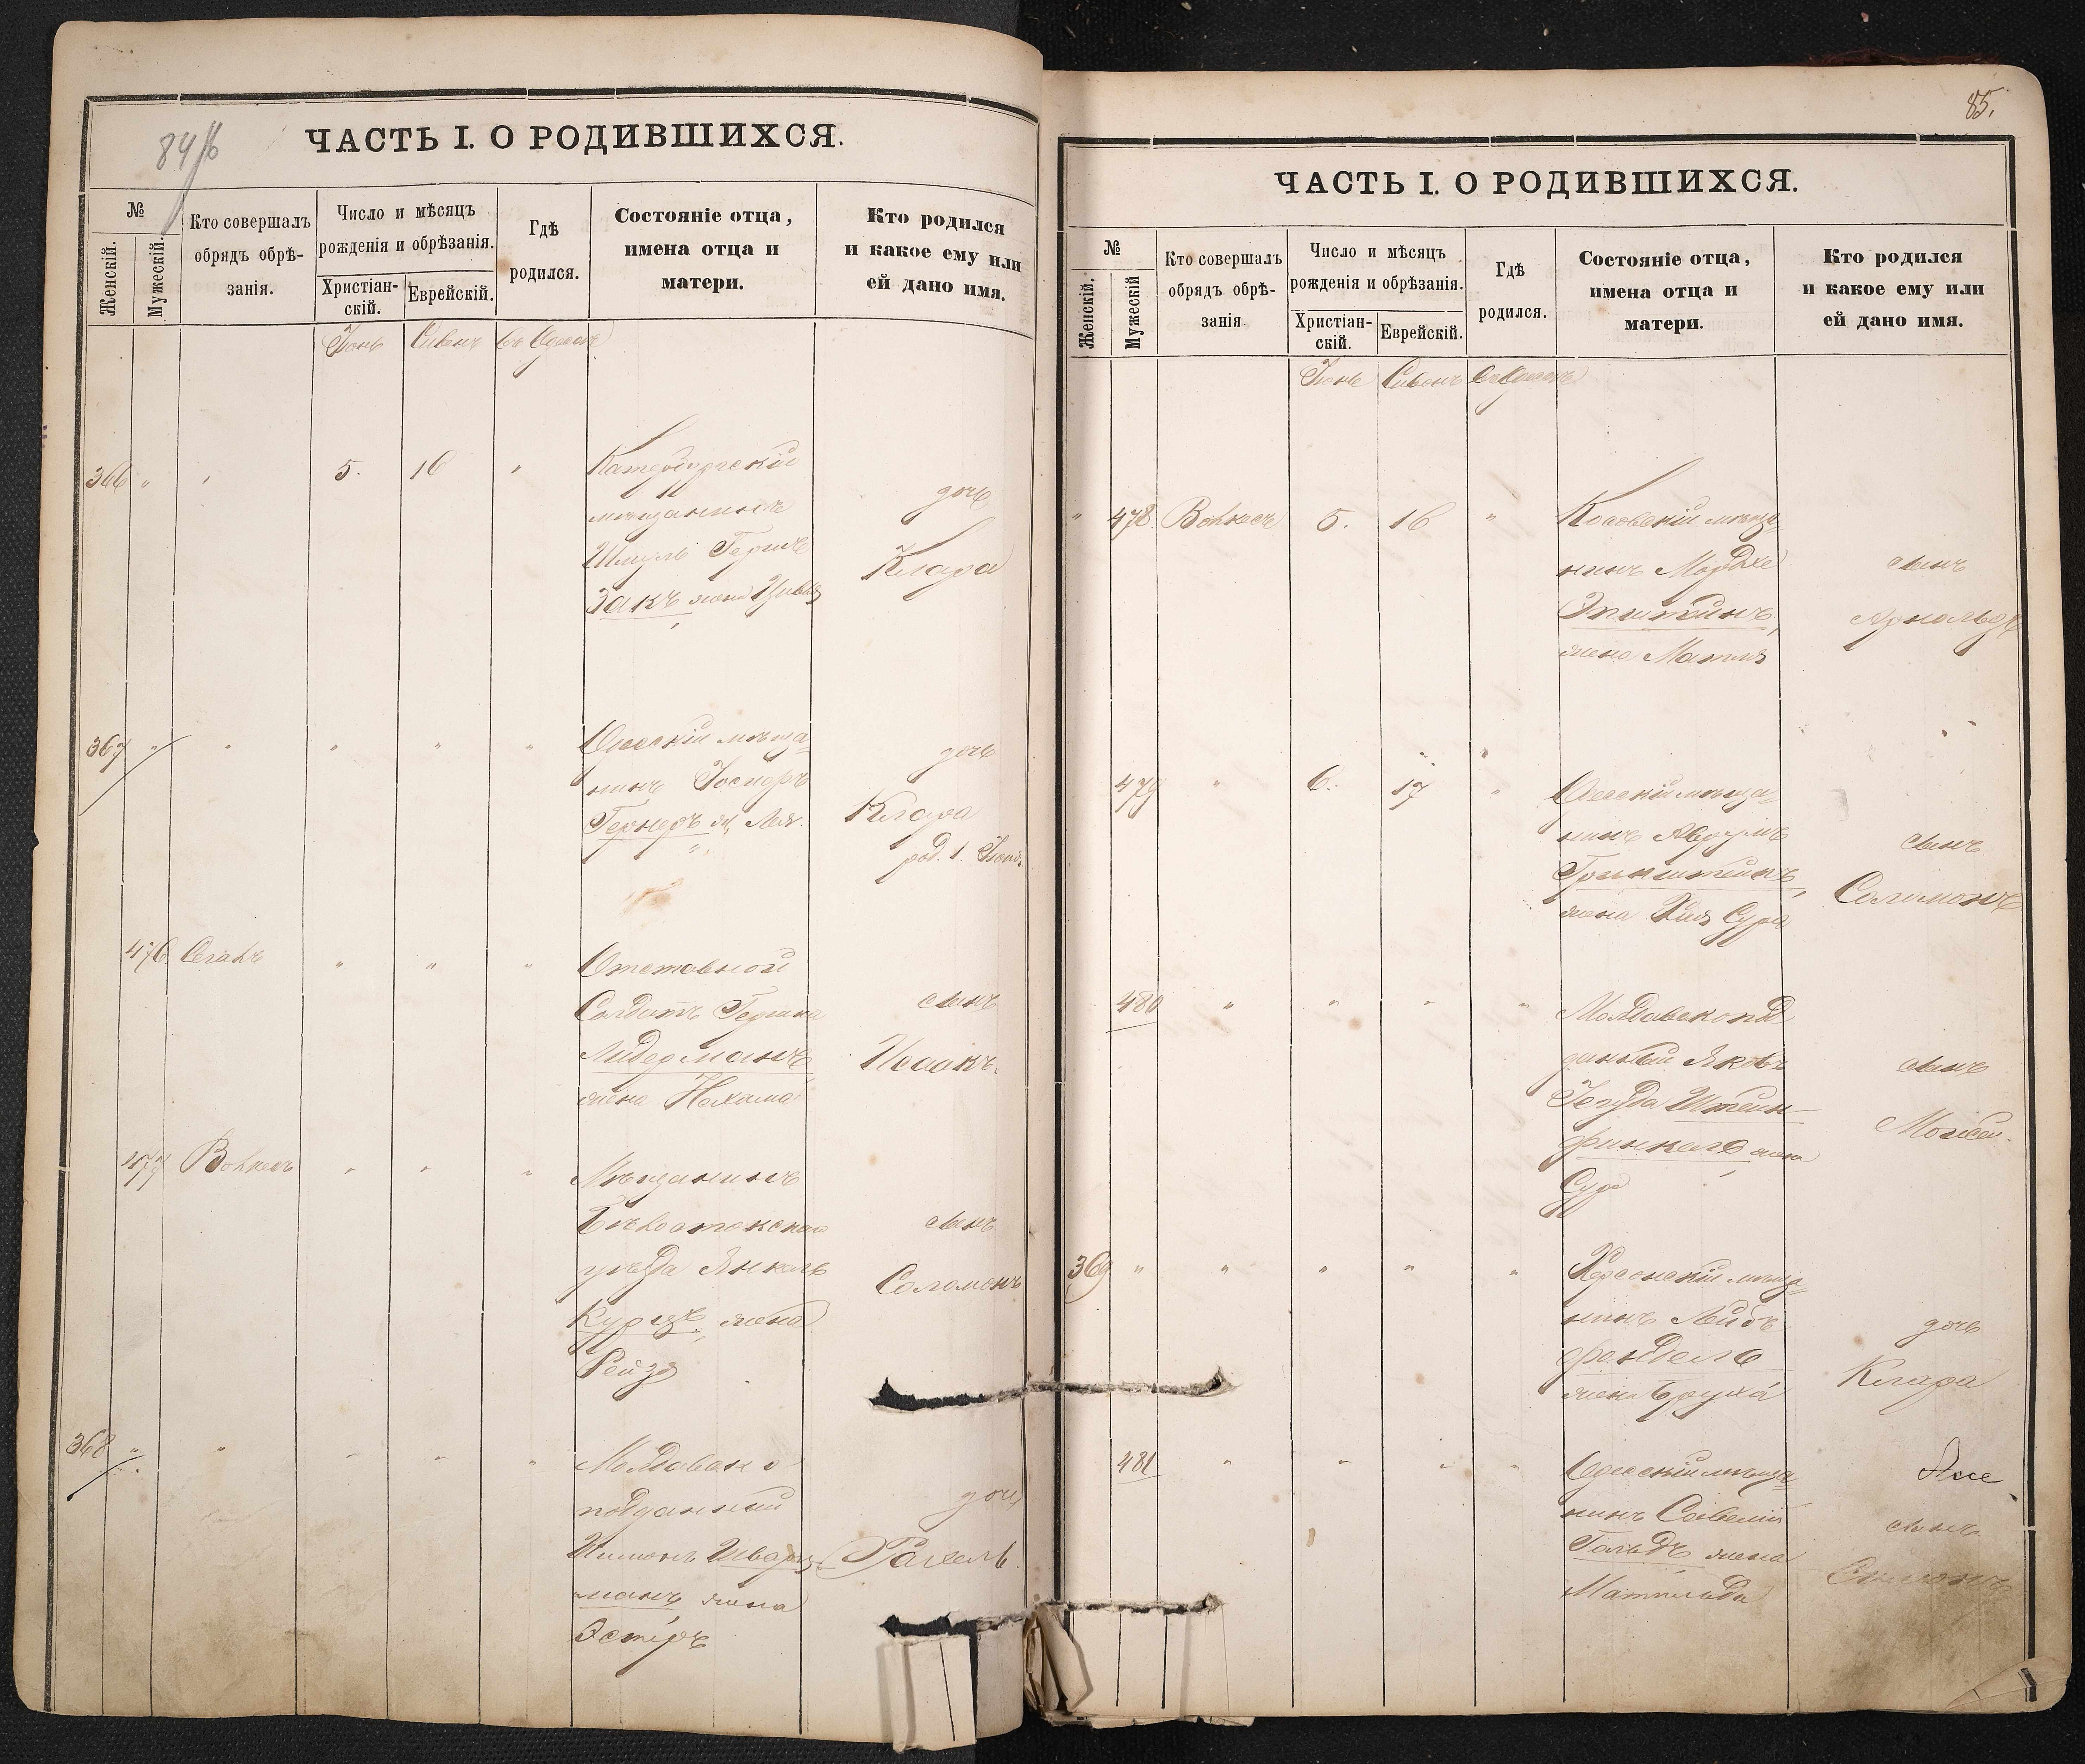 84/б
ЧАСТЬ I. О РОДИВШИХСЯ.
№
Женскій.
Мужескій.
Кто совершалъ
обрядъ обрѣ-
занія.
Число и мѣсяцъ
рожденія и обрѣзанія.
Христіан-
скій.
Еврейскій.
Гдѣ
родился.
Состояніе отца,
имена отца и
матери.
Кто родился
и какое ему или
ей дано имя.
Іюнь Сивонъ въ Одессѣ
366 " " 5. 16 "
мѣщанинъ
Шмуль Гершъ
Закъ жена Цивья
дочь
Клара
367 " " " " "
Одесскій мѣща-
нинъ
Гернеръ ж. Лея.
дочь
Клара
род. 1. Іюня
476 Сегалъ " " "
Отставной
Солдатъ
Лидерманъ
жена Нехама
сынъ
Исаакъ.
477 " " "
Мѣщанинъ
Бѣлостокскаго
уѣзда Янкель
Курцъ, жена
Рейзя
сынъ
Соломонъ
368 " " " " "
Молдавско
подданный
Шимонъ Шварц-
манъ жена
Эстеръ
дочь
Рахель.
85.
ЧАСТЬ I. О РОДИВШИХСЯ.
№
Женскій.
Мужескій
Кто совершалъ
обрядъ обрѣ-
занія
Число и мѣсяцъ
рожденія и обрѣзанія.
Христіан-
скій.
Еврейскій.
Гдѣ
родился.
Состояніе отца,
имена отца и
матери.
Кто родился
и какое ему или
ей дано имя.
Іюнь Сивонъ въ Одессѣ
" 478. 5. 16 "
мѣща-
нинъ Мордхе
Эпштейнъ,
жена Матля
сынъ
Арнольдъ
479 " 6. 17 "
Одесскій мѣща-
нинъ Аврумъ
Гринштейнъ,
жена Хая Сура
сынъ
Соломонъ
480 " " " "
Молдавскопод-
данный Яковъ
Іегуда Штейн-
финкель жена
Сура
сынъ
Мойсей.
369 " " " " "
Херсонскій мѣща-
нинъ Лейбъ
Френдель
жена Бруха
дочь
Клара
481 " " " "
Одесскій мѣща-
нинъ Савелій
Гольдъ, жена
Матильда
сынъ